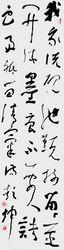 我家洗硯池頭樹個個華
開淡墨痕不要人誇好顏
色只留清氣滿乾坤